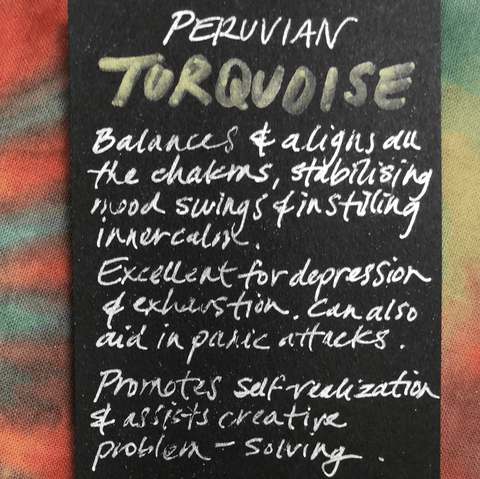 PERUVIAN
TURQUOISE
Balances & aligns all
the chakras, stabilising
mood swings & instiling
inner calm.
Excellent for depression
& exhaustion. Can also
aid in panic attacks.
Promotes self-realization
& assists creative
problem-solving.